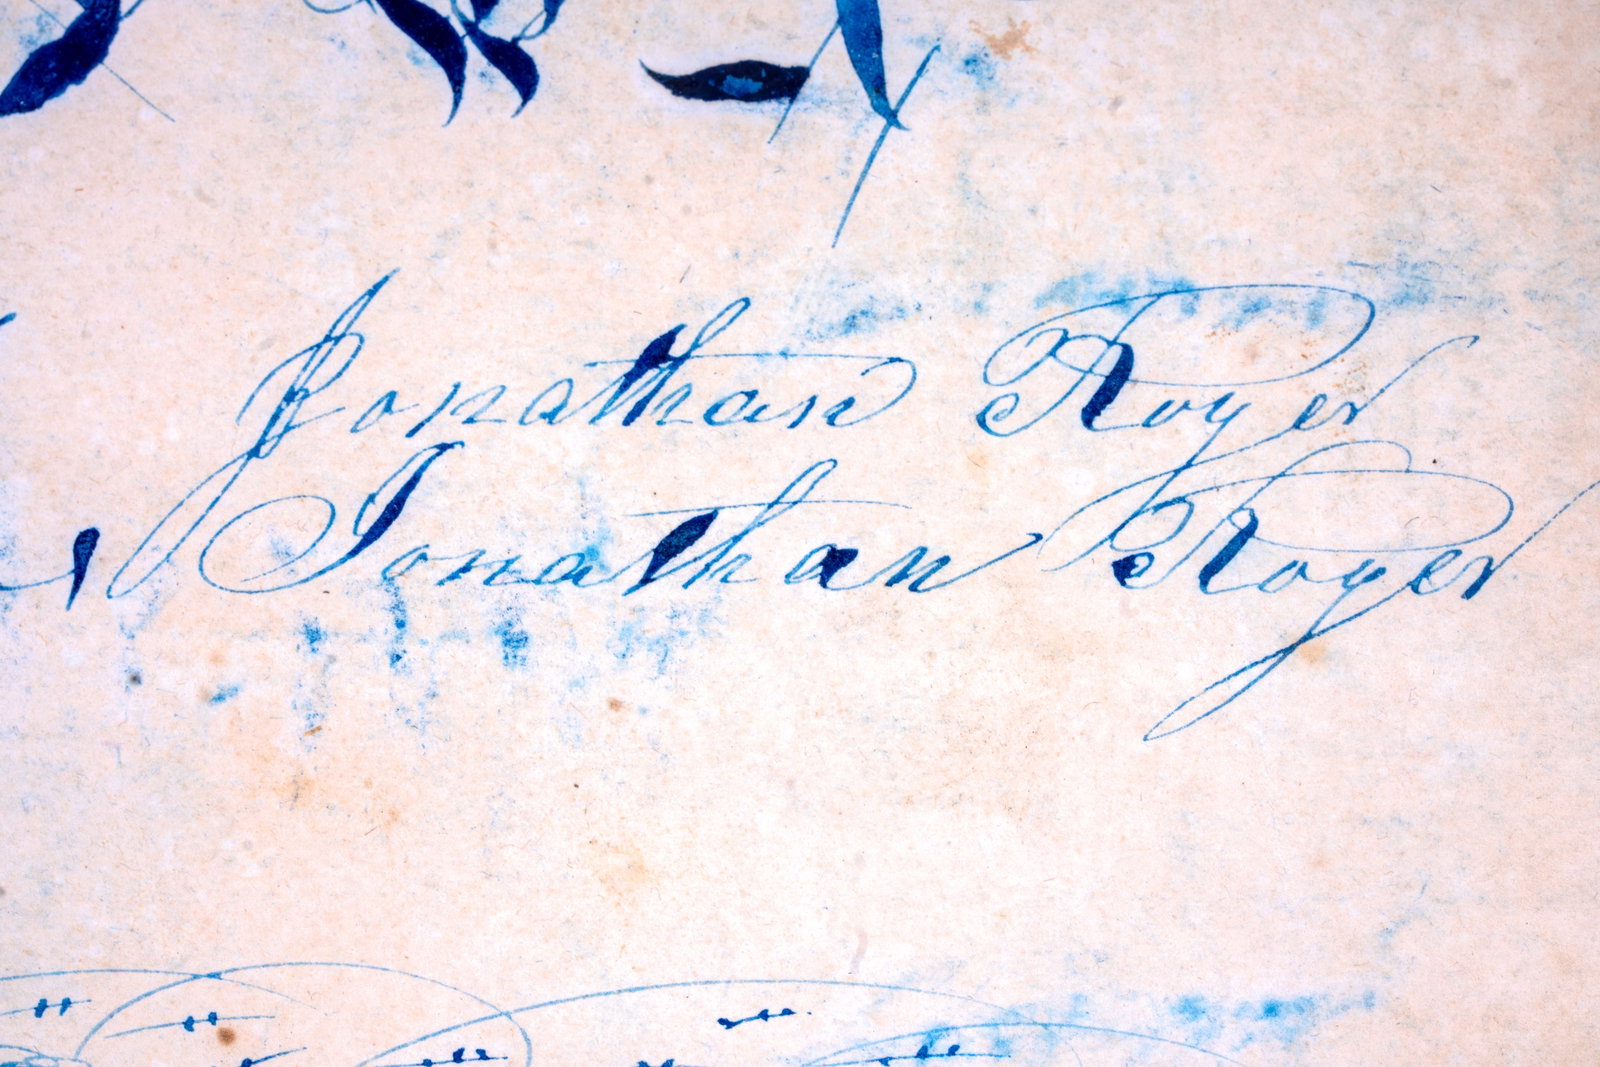 Jonathan Royer
Jonathan Royer